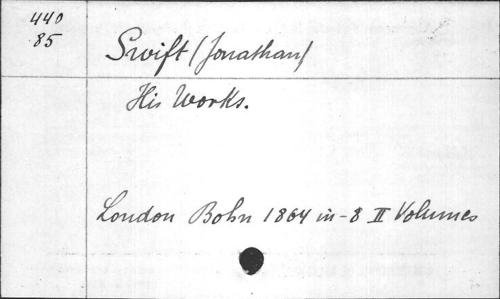 440
85
Swift (Jonathan)
His Works.
London Bohn 1864 in-8 II Volumes